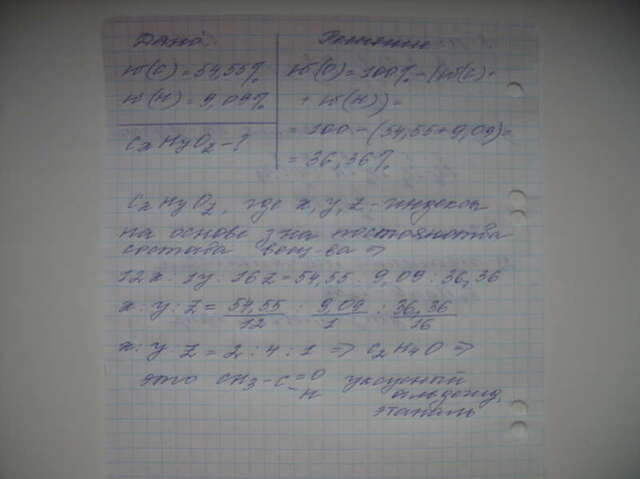 Дано:
w(C) = 54,55%
w(H) = 9,09%
CxHyOz - ?
Решение
w(O) = 100% - (w(C) +
+ w(H)) =
= 100 - (54,55 + 9,09) =
= 36,36%
CxHyOz, где x, y, z - индексы
на основе з-на постоянства
состава вещ-ва =>
12x : 1y : 16z = 54,55 : 9,09 : 36,36
x : y : z = 54,55/12 : 9,09/1 : 36,36/16
x : y : z = 2 : 4 : 1 => C2H4O =>
это CH3-C=O -H уксусный
альдегид,
этаналь